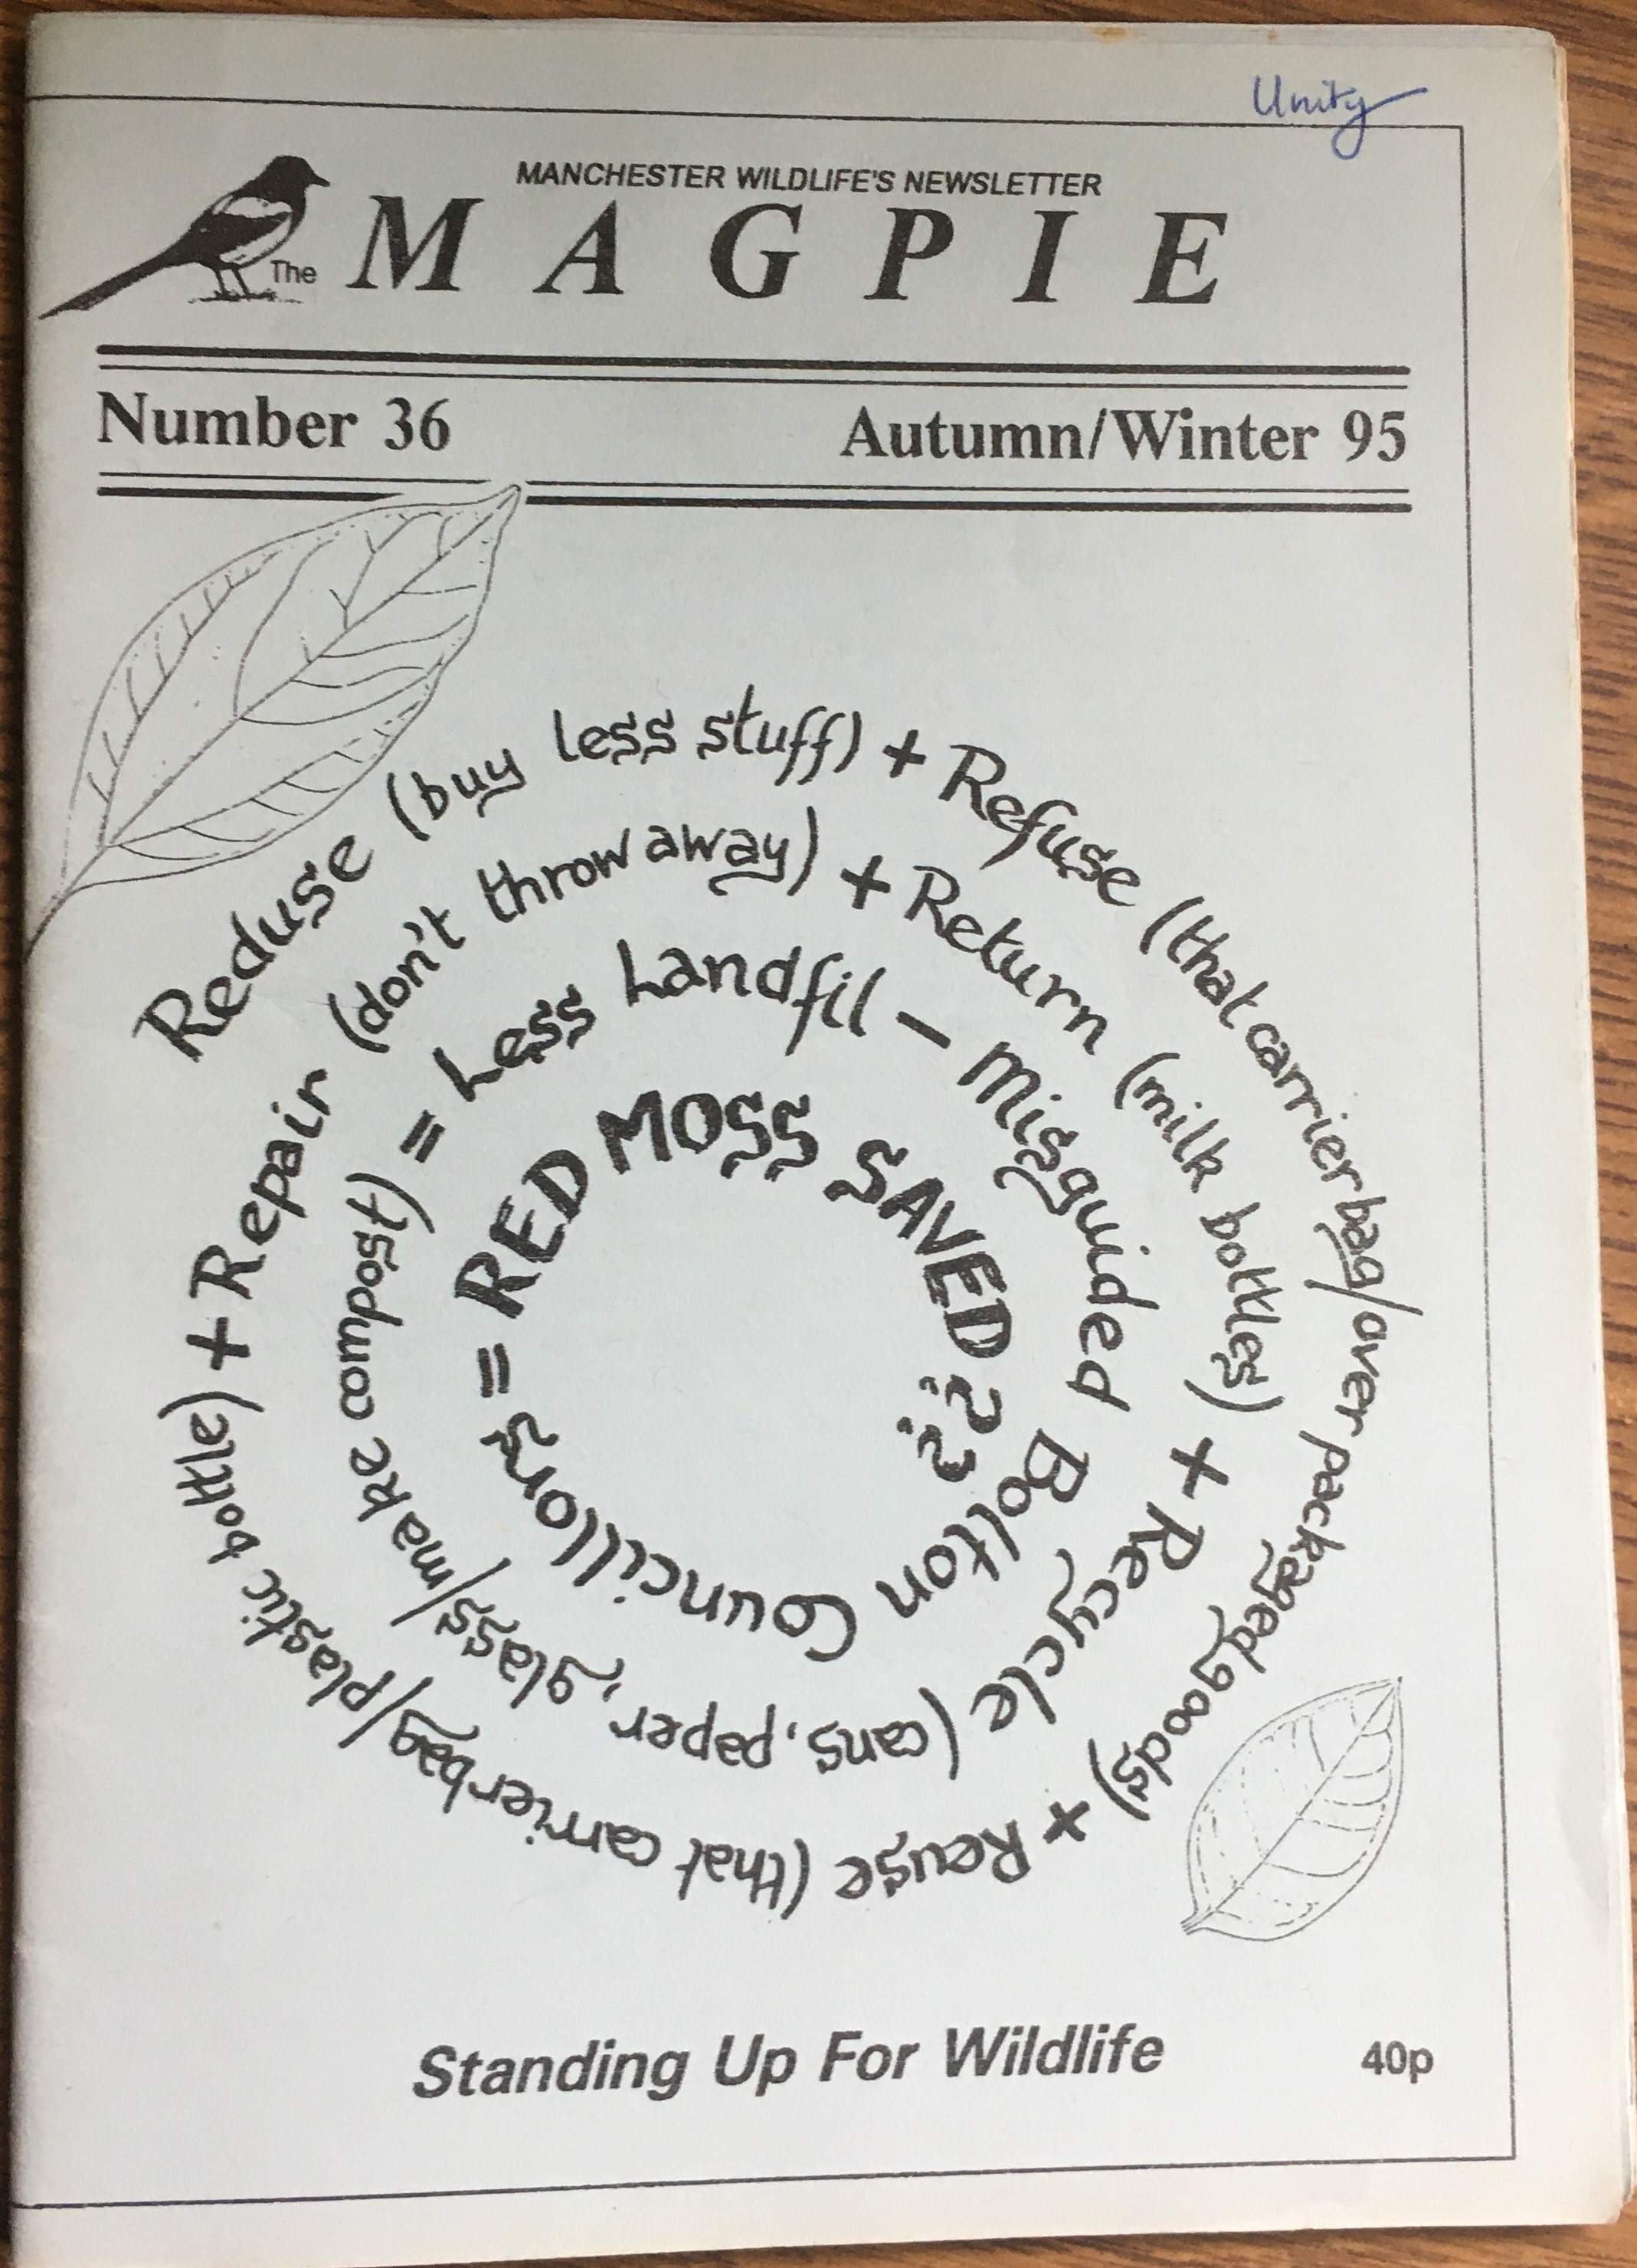 Unity
MANCHESTER WILDLIFE'S NEWSLETTER
The MAGPIE
Number 36
Autumn/Winter 95
Reduse (buy less stuff) + Refuse (that carrierbag/over packaged goods) + Reuse (that carrierbag/plastic bottle) + Repair (don't throw away) + Return (milk bottles) + Recycle (cans, paper, glass/make compost) = Less Landfil - Misguided Bolton Councillors = RED MOSS SAVED??
Standing Up For Wildlife
40p